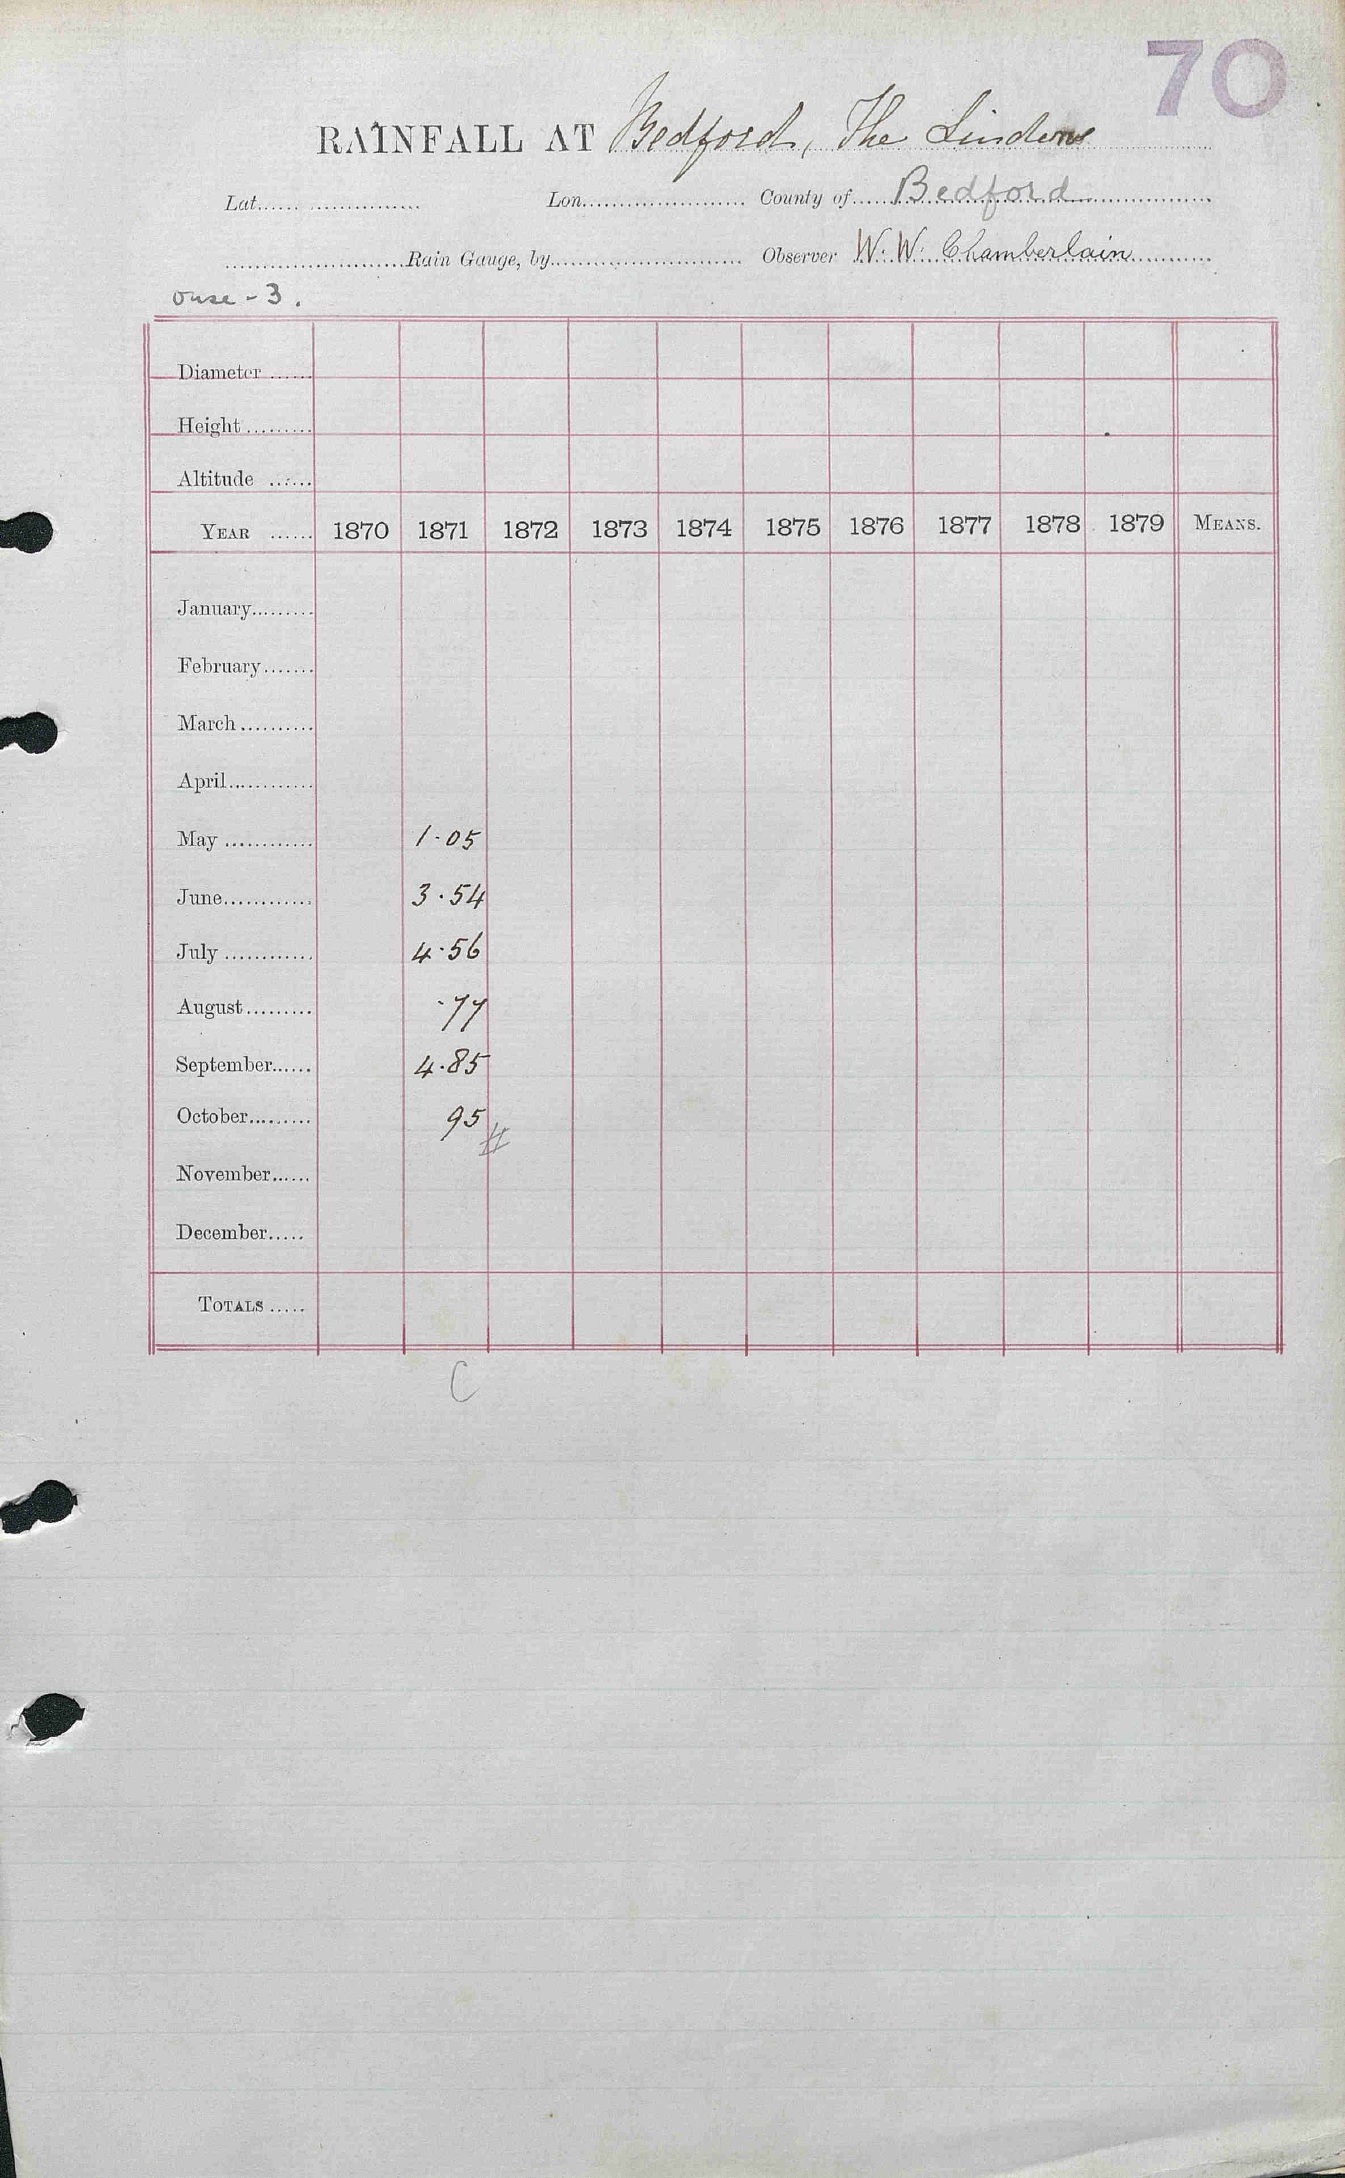 70
RAINFALL AT Bedford, The Lindens
Lat. Lon. County of Bedford
Rain Gauge, by Observer W. W. Chamberlain
Ouse - 3.
Diameter
Height
Altitude
YEAR 1870 1871 1872 1873 1874 1875 1876 1877 1878 1879 MEANS.
January
February
March
April
May 1·05
June 3·54
July 4·56
August ·77
September 4·85
October 95 #
November
December
TOTALS
C